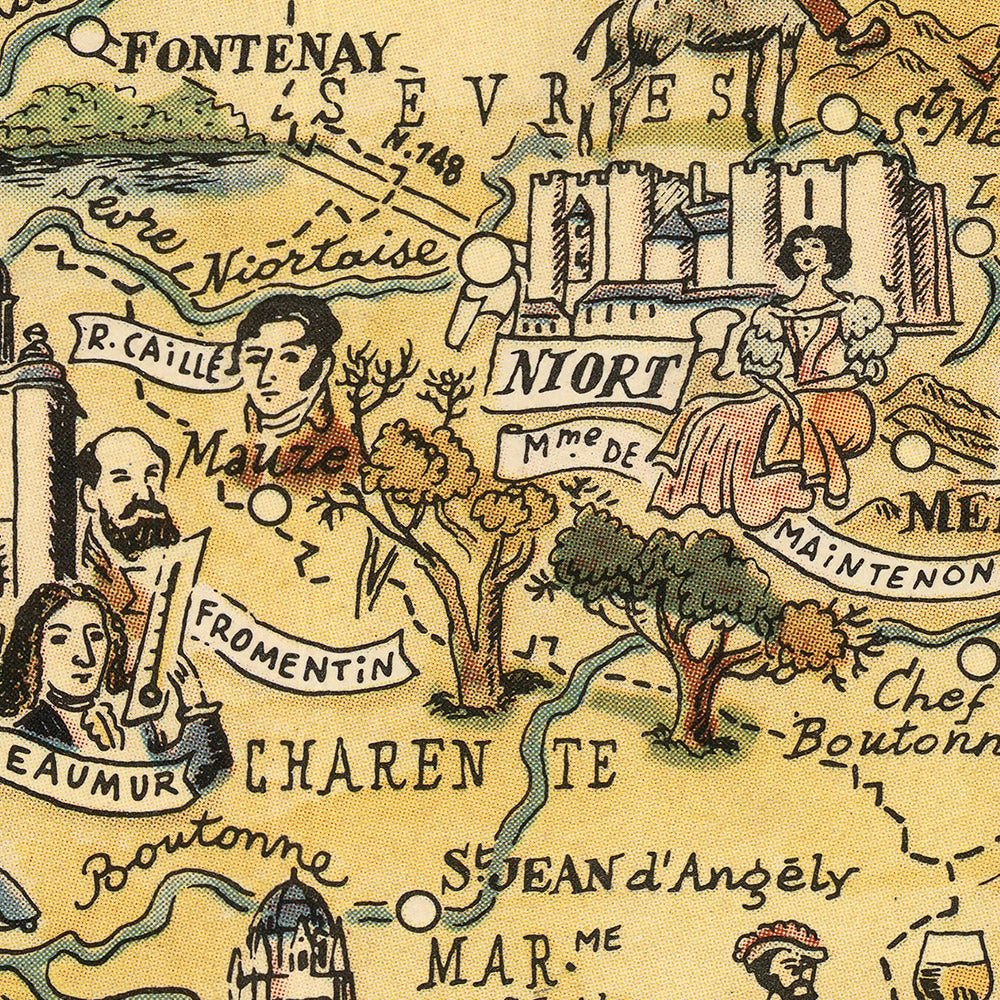 FONTENAY
SÈVRES
St M
N.148
Sèvre
Niortaise
R. CAILLÉ
NIORT
Mme DE
Mauzé
ME
MAINTENON
FROMENTIN
Chef
Boutonn
CHARENTE
EAUMUR
Boutonne
St JEAN d'Angély
MAR.ME